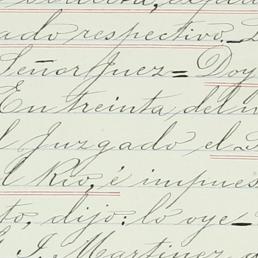 ado respectivo._
Señor Juez = Doy
En treinta del m
l Juzgado el
el Rio, é impues
to, dijo: lo oye_
J. Martinez